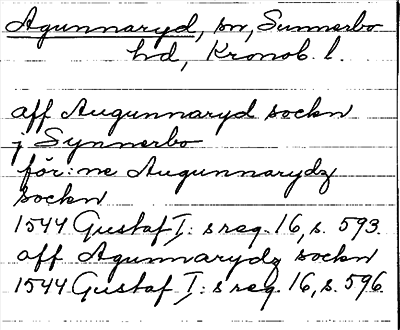 Agunnaryd, sn, Sunnerbo
hd, Kronob. l.
aff Augunnaryd sockn
j Synnerbo
för:ne Augunnarydz
sockn
1544 Gustaf I: s reg. 16, s. 593.
aff Agunnarydz sockn
1544 Gustaf I: s reg. 16, s. 596.